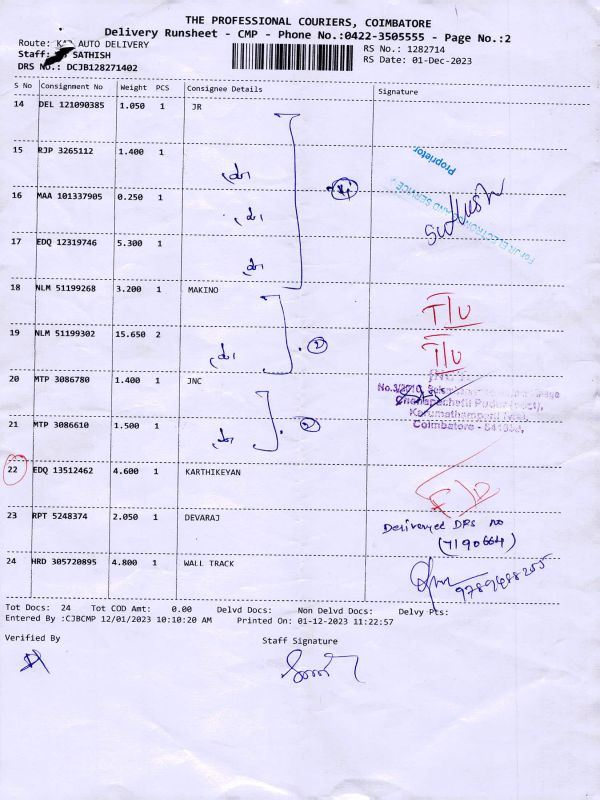 THE PROFESSIONAL COURIERS, COIMBATORE
Delivery Runsheet - CMP - Phone No.:0422-3505555 - Page No.:2
Route: AUTO DELIVERY
RS No.: 1282714
Staff: SATHISH
RS Date: 01-Dec-2023
DRS No.: DCJB128271402
S No Consignment No Weight PCS Consignee Details Signature
14 DEL 121090385 1.050 1 JR
15 RJP 3265112 1.400 1
Proprietor
16 MAA 101337905 0.250 1
For JR ELECTRONICS AND SERVICE
Sathish
17 EDQ 12319746 5.300 1
18 NLM 51199268 3.200 1 MAKINO
T/U
19 NLM 51199302 15.650 2
(2)
T/U
20 MTP 3086780 1.400 1 JNC
Karumathampatti
Coimbatore - 641659.
21 MTP 3086610 1.500 1
(2)
22 EDQ 13512462 4.600 1 KARTHIKEYAN
F/D
23 RPT 5248374 2.050 1 DEVARAJ
Deliveryed DRS no
(7190664)
24 HRD 305720895 4.800 1 WALL TRACK
9789488255
Tot Docs: 24 Tot COD Amt: 0.00 Delvd Docs: Non Delvd Docs: Delvy Pts:
Entered By :CJBCMP 12/01/2023 10:10:20 AM Printed On: 01-12-2023 11:22:57
Verified By Staff Signature